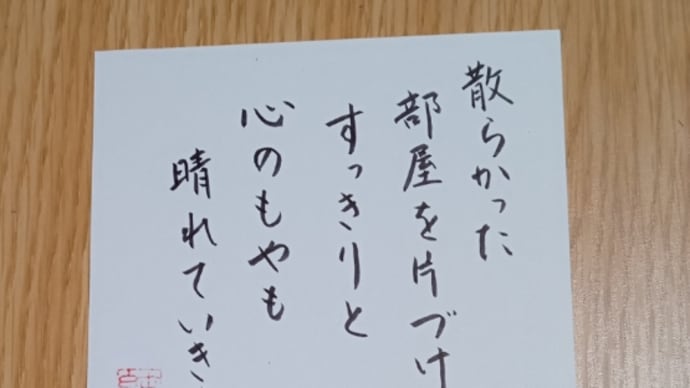 散らかった
部屋を片づけ
すっきりと
心のもやも
晴れていき